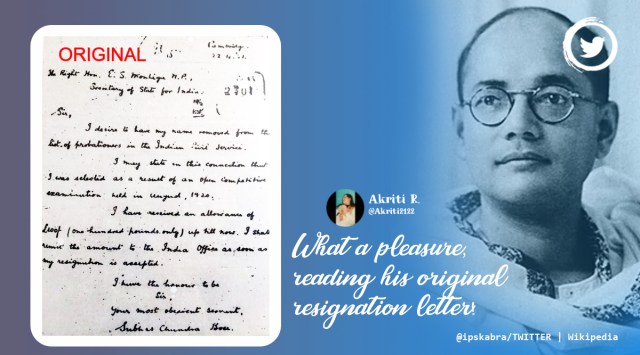 ORIGINAL
The Right Hon. E. S. Montagu M.P.,
Secretary of State for India.
Sir,
I desire to have my name removed from the
list of probationers in the Indian Civil Service.
I may state in this connection that
I was selected as a result of an open competitive
examination held in August, 1920.
I have received an allowance of
£100/- (one hundred pounds only) up till now. I shall
remit the amount to the India Office as soon as
my resignation is accepted.
I have the honour to be
Sir,
Your most obedient servant,
Subhas Chandra Bose.
Akriti R.
@Akriti2122
What a pleasure,
reading his original
resignation letter!
@ipskabra/TWITTER | Wikipedia